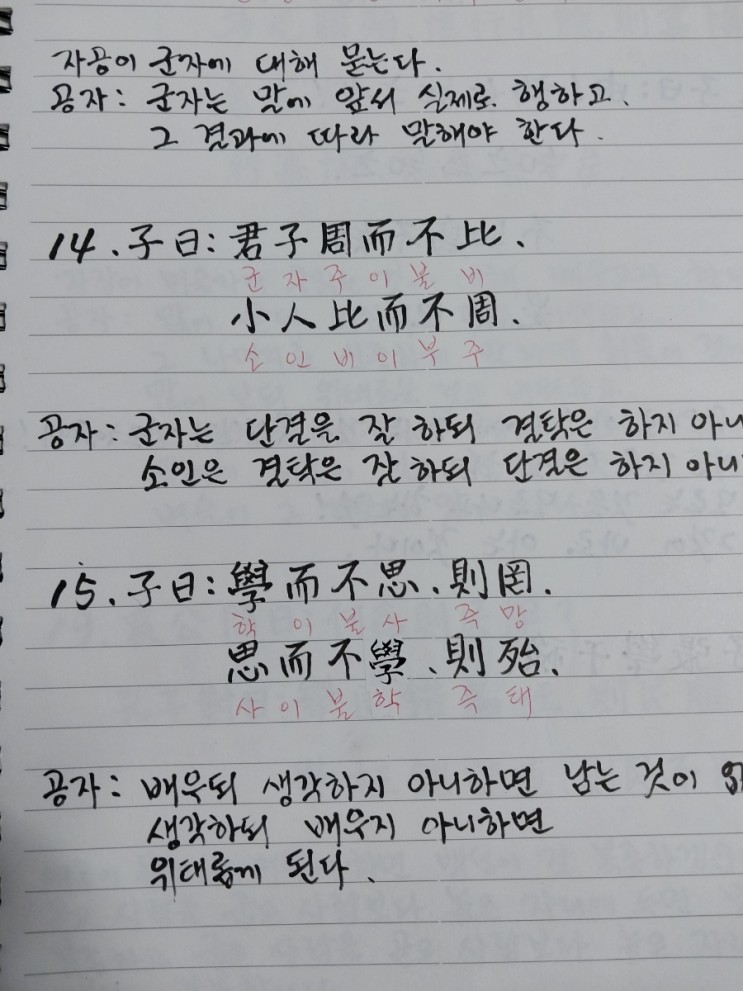 자공이 군자에 대해 묻는다.
공자: 군자는 말에 앞서 실제로 행하고.
그 결과에 따라 말해야 한다.
14. 子曰: 君子周而不比.
군자주이불비
小人比而不周.
소인비이부주
공자: 군자는 단결을 잘 하되 결탁은 하지 아니
소인은 결탁은 잘 하되 단결은 하지 아니
15. 子曰: 學而不思、則罔.
학이불사 즉망
思而不學、則殆.
사이불학 즉태
공자: 배우되 생각하지 아니하면 남는 것이
생각하되 배우지 아니하면
위태롭게 된다.